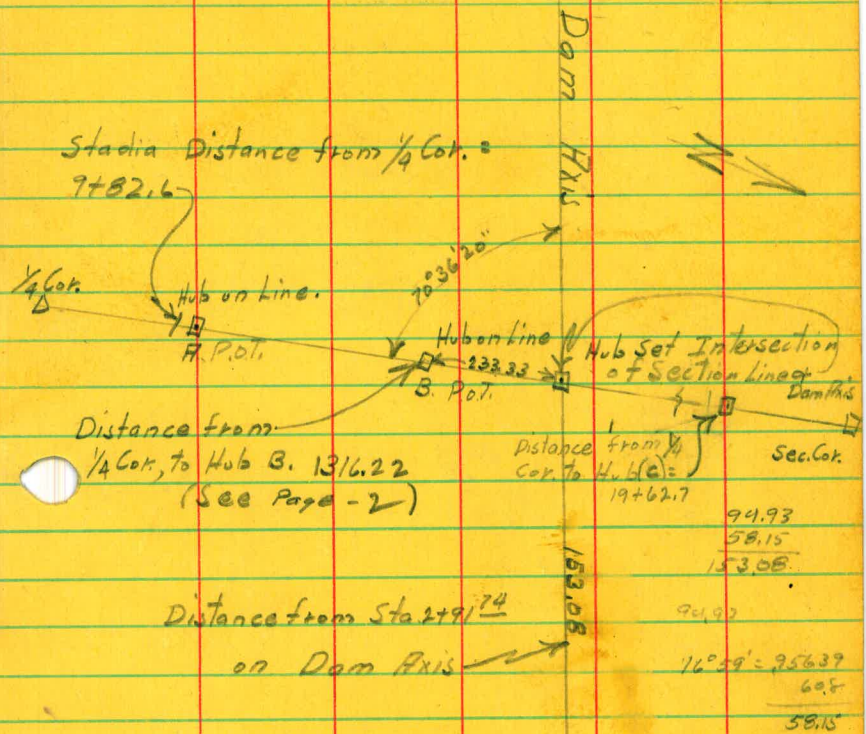 Dam Axis
Stadia Distance from 1/4 Cor. =
9+82.6
N
70°36'20"
1/4 Cor.
Hub on Line.
A. P.O.T.
Hub on Line
233.33
B. P.O.T.
Hub Set Intersection
of Section Line &
Dam Axis
Distance from
1/4 Cor, to Hub B. 1316.22
(See Page - 2)
Distance from 1/4
Cor. to Hub(c)=
19+62.7
Sec. Cor.
94.93
58.15
153.08
153.08
Distance from Sta. 2+91 74
on Dam Axis
94.93
76°59' = .95639
60.8
58.15